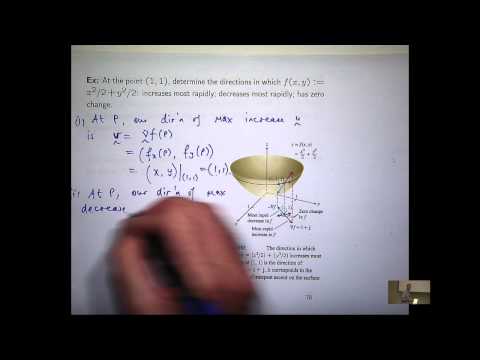 Ex: At the point (1, 1), determine the directions in which f(x, y) :=
x²/2 + y²/2: increases most rapidly; decreases most rapidly; has zero
change.
(i) At P, our dir'n of max increase u
is u = ∇f(P)
= (fx(P), fy(P))
= (x, y)|(1,1) = (1,1).
(ii) At P, our dir'n of max
decrease
z
z = f(x, y)
= x²/2 + y²/2
Most rapid
decrease in f
Zero change
in f
Most rapid
increase in f
∇f = i + j
The direction in which
= (x²/2) + (y²/2) increases most
at (1, 1) is the direction of
= i + j. It corresponds to the
of steepest ascent on the surface